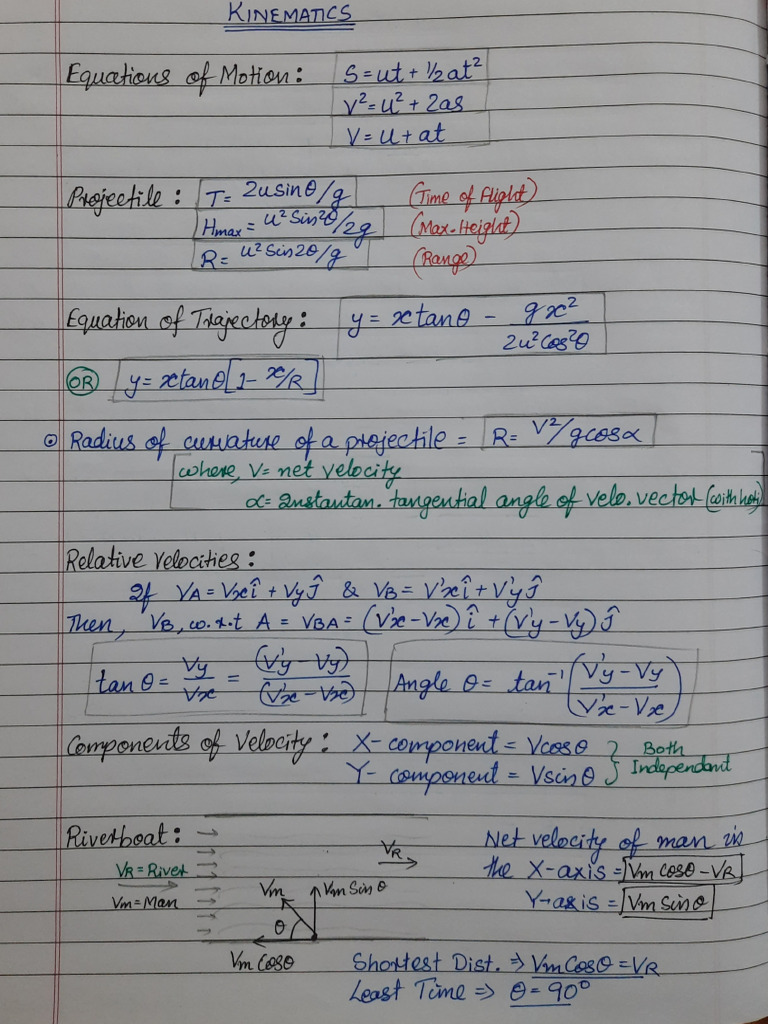 KINEMATICS
Equations of Motion: S = ut + 1/2 at²
V² = u² + 2as
V = u + at
Projectile: T = 2usinθ/g (Time of flight)
Hmax = u² Sin²θ/2g (Max-Height)
R = u² Sin2θ/g (Range)
Equation of Trajectory: y = x tanθ - gx²/2u²Cos²θ
OR y = xtanθ[1 - x/R]
Radius of curvature of a projectile = R = V²/gcosα
where, V = net velocity
α = Instantan. tangential angle of velo. vector (with hori)
Relative Velocities:
If VA = Vx î + Vy ĵ & VB = V'x î + V'y ĵ
Then, VB, w.r.t A = VBA = (V'x - Vx) î + (V'y - Vy) ĵ
tan θ = Vy/Vx = (V'y - Vy)/(V'x - Vx) Angle θ = tan⁻¹ (V'y - Vy/V'x - Vx)
Components of Velocity: X-component = Vcosθ } Both
Y-component = Vsinθ } Independant
Riverboat: VR Net velocity of man in
VR = River the X-axis = Vm cosθ - VR
Vm = Man Vm Vm Sin θ Y-axis = Vm Sin θ
θ
Vm Cosθ Shortest Dist. ⇒ Vm Cosθ = VR
Least Time ⇒ θ = 90°